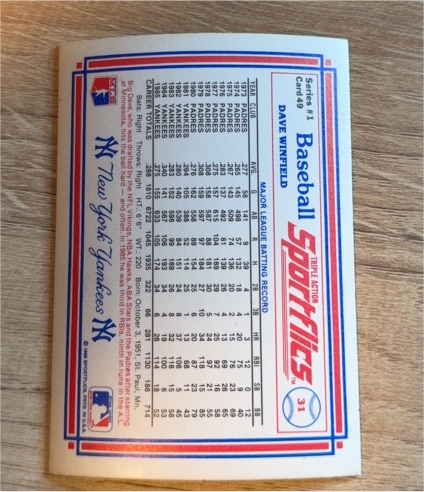 Series #1
Card 49
Baseball
TRIPLE ACTION
Sportflics™
31
DAVE WINFIELD
MAJOR LEAGUE BATTING RECORD
YEAR CLUB AVG G AB R H 2B 3B HR RBI SB BB
1973 PADRES .277 56 141 9 39 4 1 3 12 0 12
1974 PADRES .265 145 498 57 132 18 4 20 75 9 40
1975 PADRES .267 143 509 74 136 20 2 15 76 23 69
1976 PADRES .283 137 492 81 139 26 4 13 69 26 65
1977 PADRES .275 157 615 104 169 29 7 25 92 16 58
1978 PADRES .308 158 587 88 181 30 5 24 97 21 55
1979 PADRES .308 159 597 97 184 27 10 34 118 15 85
1980 PADRES .276 162 558 89 154 25 6 20 87 23 79
1981 YANKEES .294 105 388 52 114 25 1 13 68 11 43
1982 YANKEES .280 140 539 84 151 24 8 37 106 5 45
1983 YANKEES .283 152 598 99 169 26 8 32 116 15 58
1984 YANKEES .340 141 567 106 193 34 4 19 100 6 53
1985 YANKEES .275 155 633 105 174 34 6 26 114 19 52
CAREER TOTALS .288 1810 6722 1045 1935 322 66 281 1130 188 714
Bats: Right Throws: Right HT: 6'6" WT: 220 Born: October 3, 1951, St. Paul, Mn.
Big Dave, who was drafted by the NFL Vikings, NBA Hawks, ABA Stars and the Padres after starring
at Minnesota, hits the ball hard — and often. In 1985 he was third in RBIs, ninth in runs in the A.L.
NY New York Yankees NY
© 1986 SPORTFLICS, PRTD. IN U.S.A.